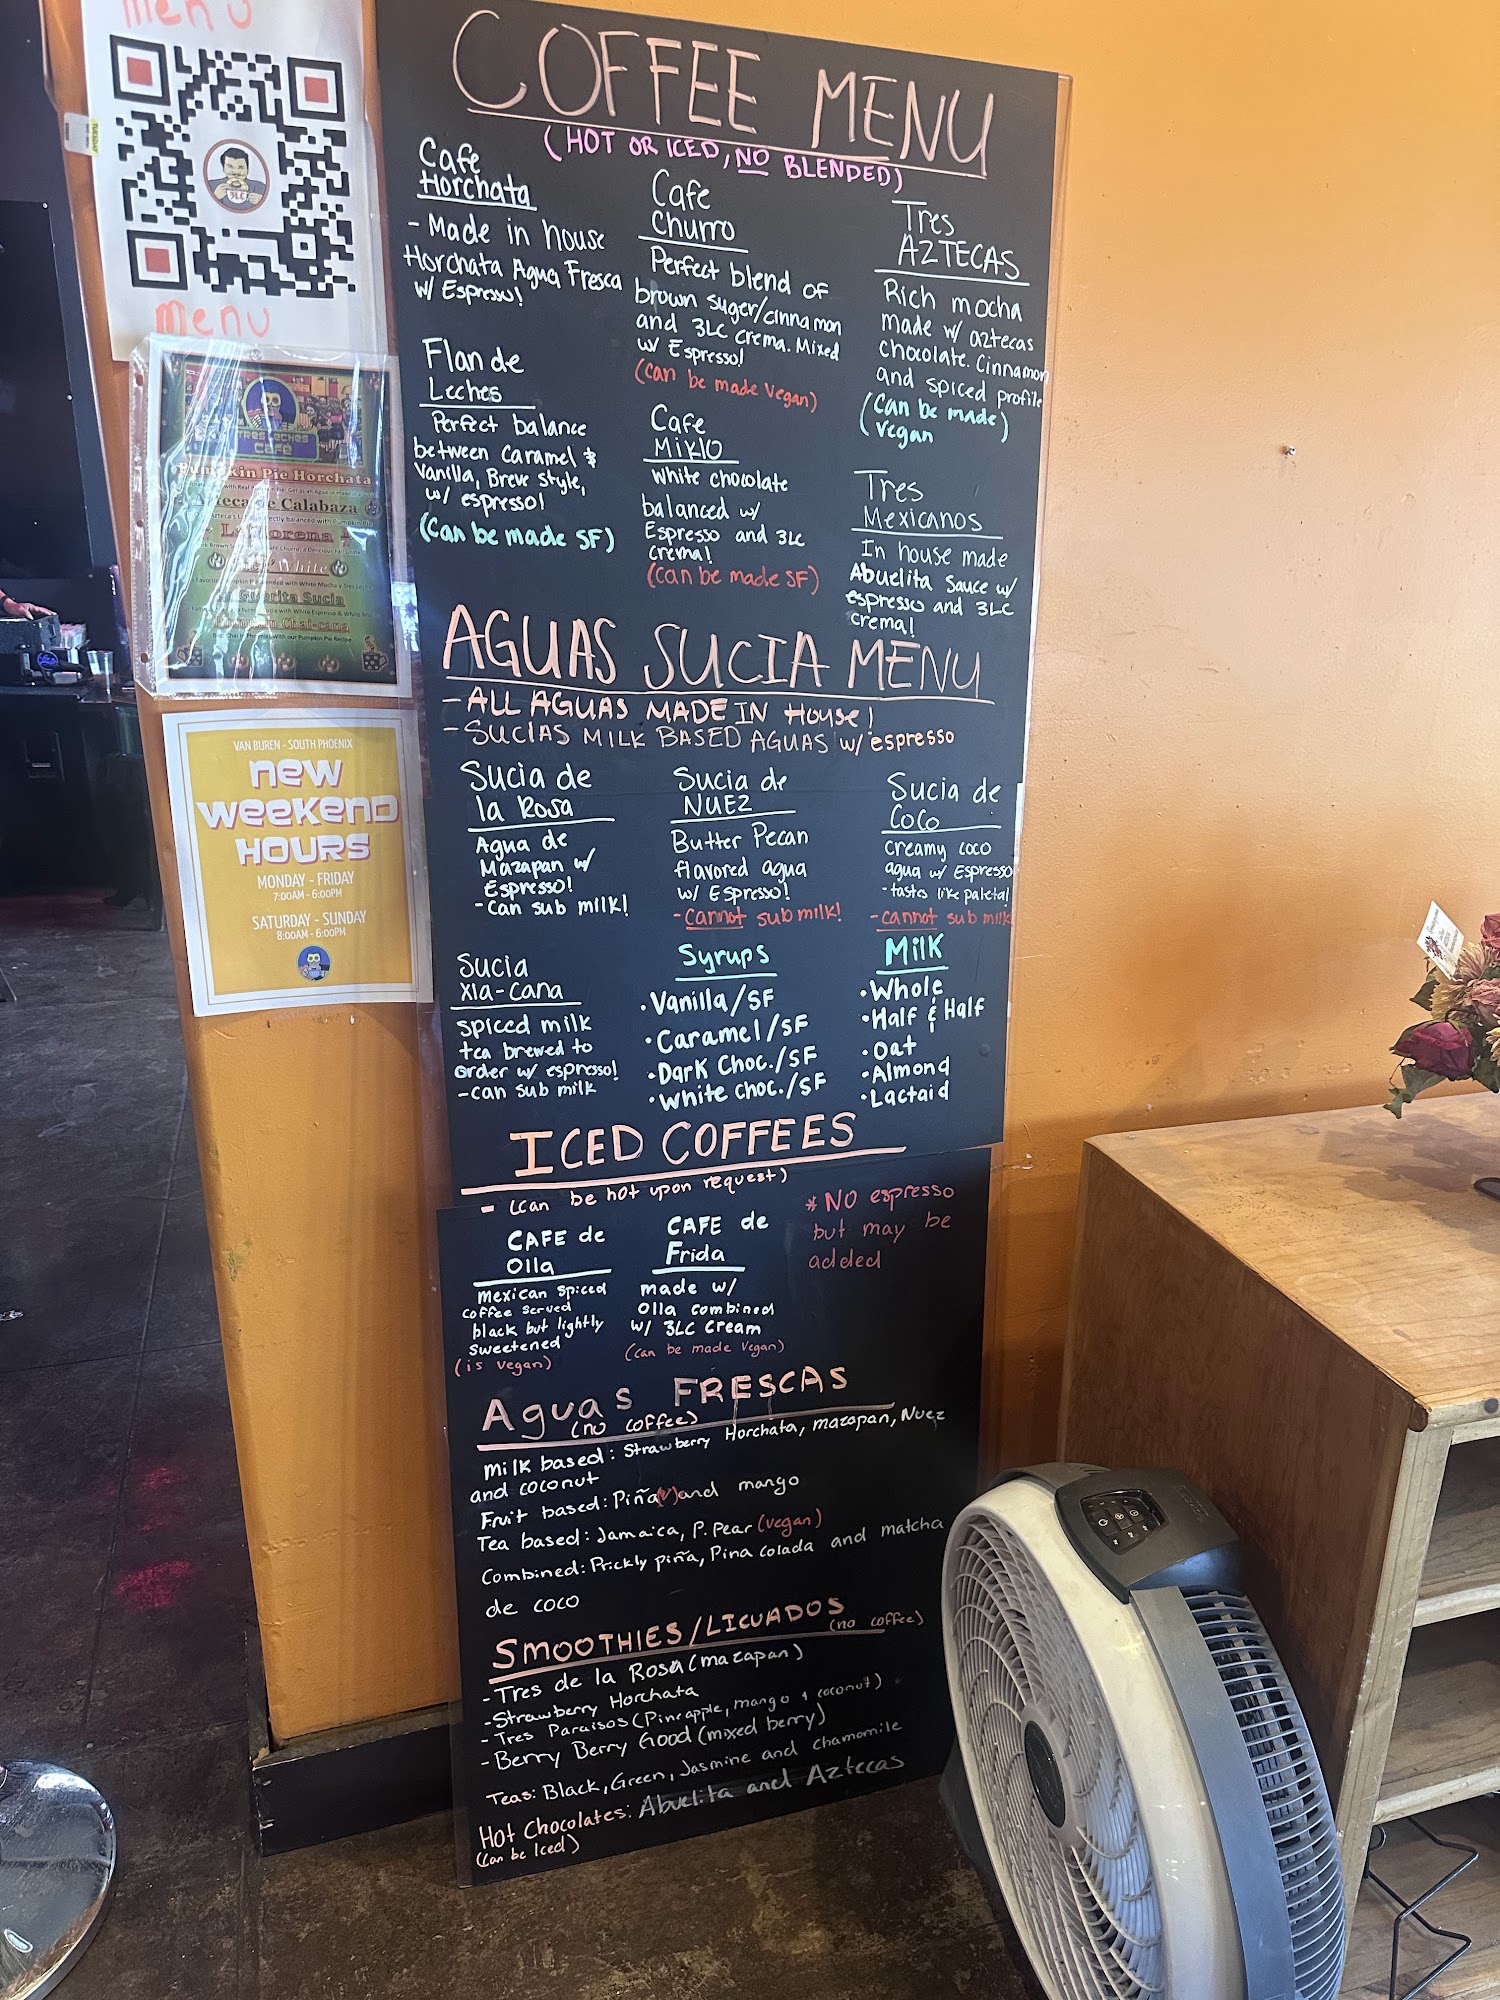 menu
3LC
TUESDAY
menu
TRES LECHES
Café
Pumpkin Pie Horchata
Calabaza
White
Guerita Sucia
Chai-cana
VAN BUREN - SOUTH PHOENIX
new
weekend
hours
MONDAY - FRIDAY
7:00AM - 6:00PM
SATURDAY - SUNDAY
8:00AM - 6:00PM
COFFEE MENU
(HOT OR ICED, NO BLENDED)
Cafe
Horchata
- Made in house
Horchata Agua Fresca
w/ Espresso!
Flan de
Leches
Perfect balance
between Caramel &
Vanilla, Breve style,
w/ espresso!
(Can be made SF)
Cafe
Churro
Perfect blend of
brown suger/cinnamon
and 3LC crema. Mixed
w/ Espresso!
(can be made vegan)
Cafe
MiKlO
White chocolate
balanced w/
Espresso and 3Lc
crema!
(can be made SF)
Tres
AZTECAS
Rich mocha
made w/ aztecas
chocolate. Cinnamon
and spiced profile
(Can be made)
vegan
Tres
Mexicanos
In house made
Abuelita Sauce w/
espresso and 3LC
crema!
AGUAS SUCIA MENU
- ALL AGUAS MADE IN House!
- SUCIAS MILK BASED AGUAS w/ espresso
Sucia de
la Rosa
Agua de
Mazapan w/
Espresso!
- Can sub milk!
Sucia de
NUEZ
Butter Pecan
flavored agua
w/ Espresso!
- Cannot sub milk!
Sucia de
Coco
creamy coco
agua w/ Espresso
- tastes like paleta!
- cannot sub milk
Sucia
Xla-cana
spiced milk
tea brewed to
order w/ espresso!
- can sub milk
Syrups
• Vanilla/SF
• Caramel/SF
• Dark Choc./SF
• White choc./SF
Milk
• Whole
• Half & Half
• Oat
• Almond
• Lactaid
ICED COFFEES
- (Can be hot upon request)
CAFE de
Olla
mexican spiced
coffee served
black but lightly
sweetened
(is vegan)
CAFE de
Frida
made w/
Olla combined
w/ 3LC cream
(can be made Vegan)
* NO espresso
but may be
added
Aguas FRESCAS
(no coffee)
Milk based: Strawberry Horchata, mazapan, Nuez
and coconut
Fruit based: Piña (v) and mango
Tea based: Jamaica, P. Pear (vegan)
Combined: Prickly piña, Pina colada and matcha
de coco
SMOOTHIES/LICUADOS
(no coffee)
- Tres de la Rosa (mazapan)
- Strawberry Horchata
- Tres Paraisos (Pineapple, mango & coconut)
- Berry Berry Good (mixed berry)
Teas: Black, Green, Jasmine and chamomile
Hot Chocolates: Abuelita and Aztecas
(Can be Iced)